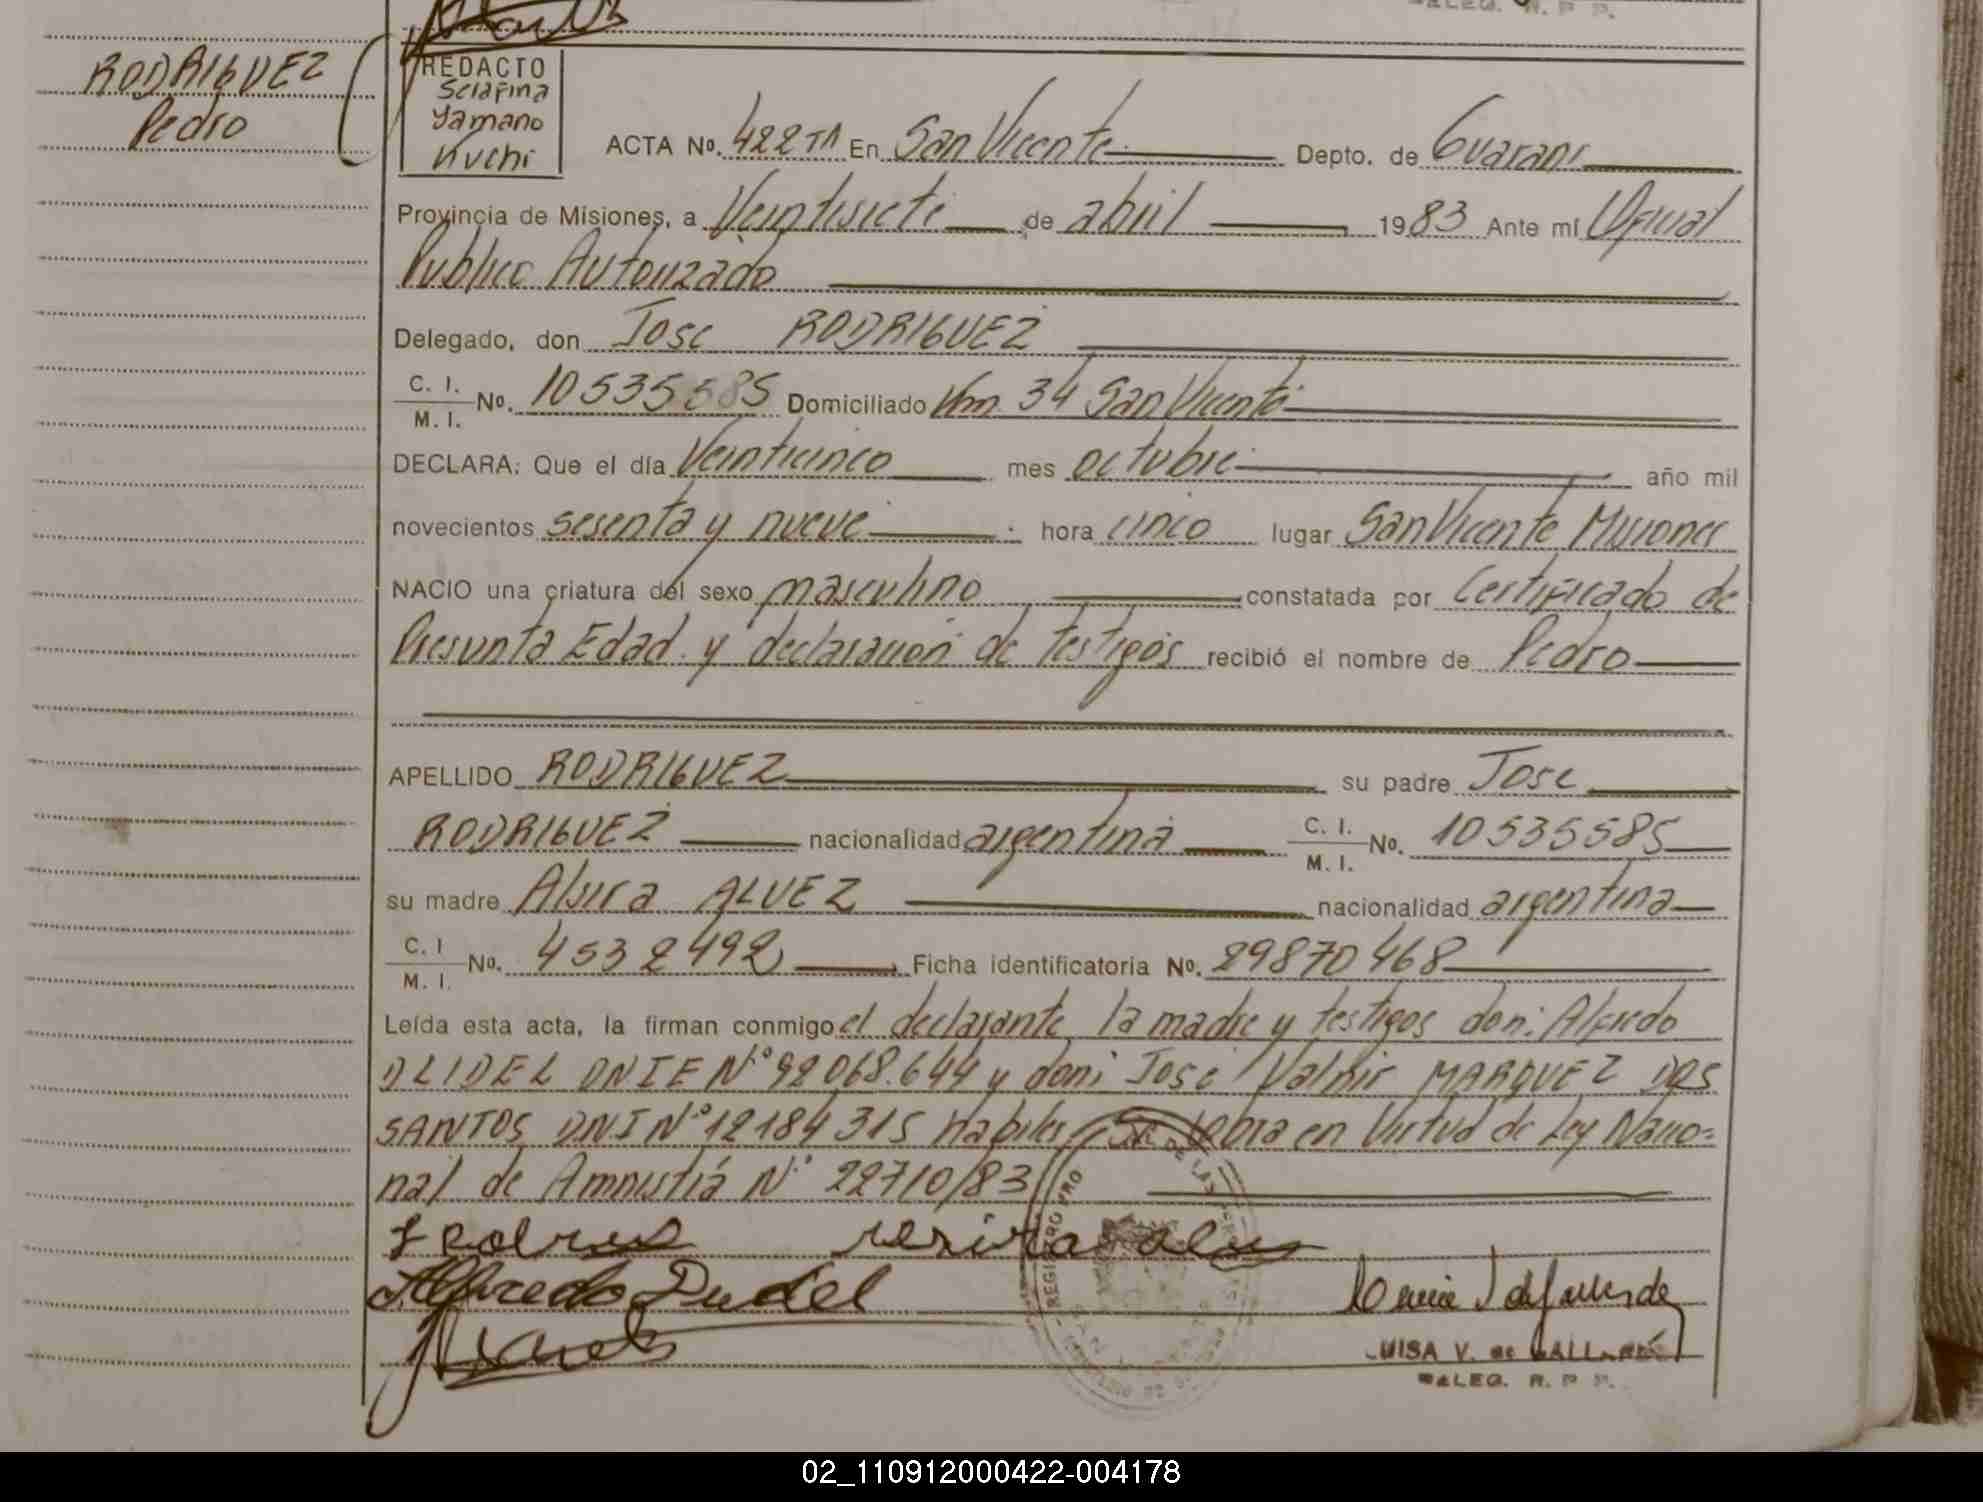 DELEG. R. P. P.
RODRIGUEZ
Pedro
REDACTO
Serafina
Yamano
Kuchi
ACTA No. 422 TA En San Vicente Depto. de Guarani
Provincia de Misiones, a Veintisiete de abril 1983 Ante mí Oficial
Publico Autorizado
Delegado, don Jose RODRIGUEZ
C. I. M. I. No. 10535585 Domiciliado Km. 34 San Vicente
DECLARA: Que el día Veinticinco mes octubre año mil
novecientos sesenta y nueve hora cinco lugar San Vicente Misiones
NACIO una criatura del sexo masculino constatada por Certificado de
Presunta Edad y declaración de testigos recibió el nombre de Pedro
APELLIDO RODRIGUEZ su padre Jose
RODRIGUEZ nacionalidad argentina C. I. M. I. No. 10535585
su madre ALVEZ nacionalidad argentina
C. I M. I. No. 4532492 Ficha identificatoria No. 29870468
Leída esta acta, la firman conmigo el declarante, la madre y testigos don: Alfredo
DNIE N° 92068.644 y don: José Valmir MARQUEZ DOS
SANTOS DNI N° 12184315 Habiles, Se labra en Virtud de Ley Nacio=
nal de Amnistiá N° 22710/83
Alfredo Dudel
REGISTRO PRO DE LAS
LUISA V. de GALLARDE
DELEG. R. P. P.
02_110912000422-004178